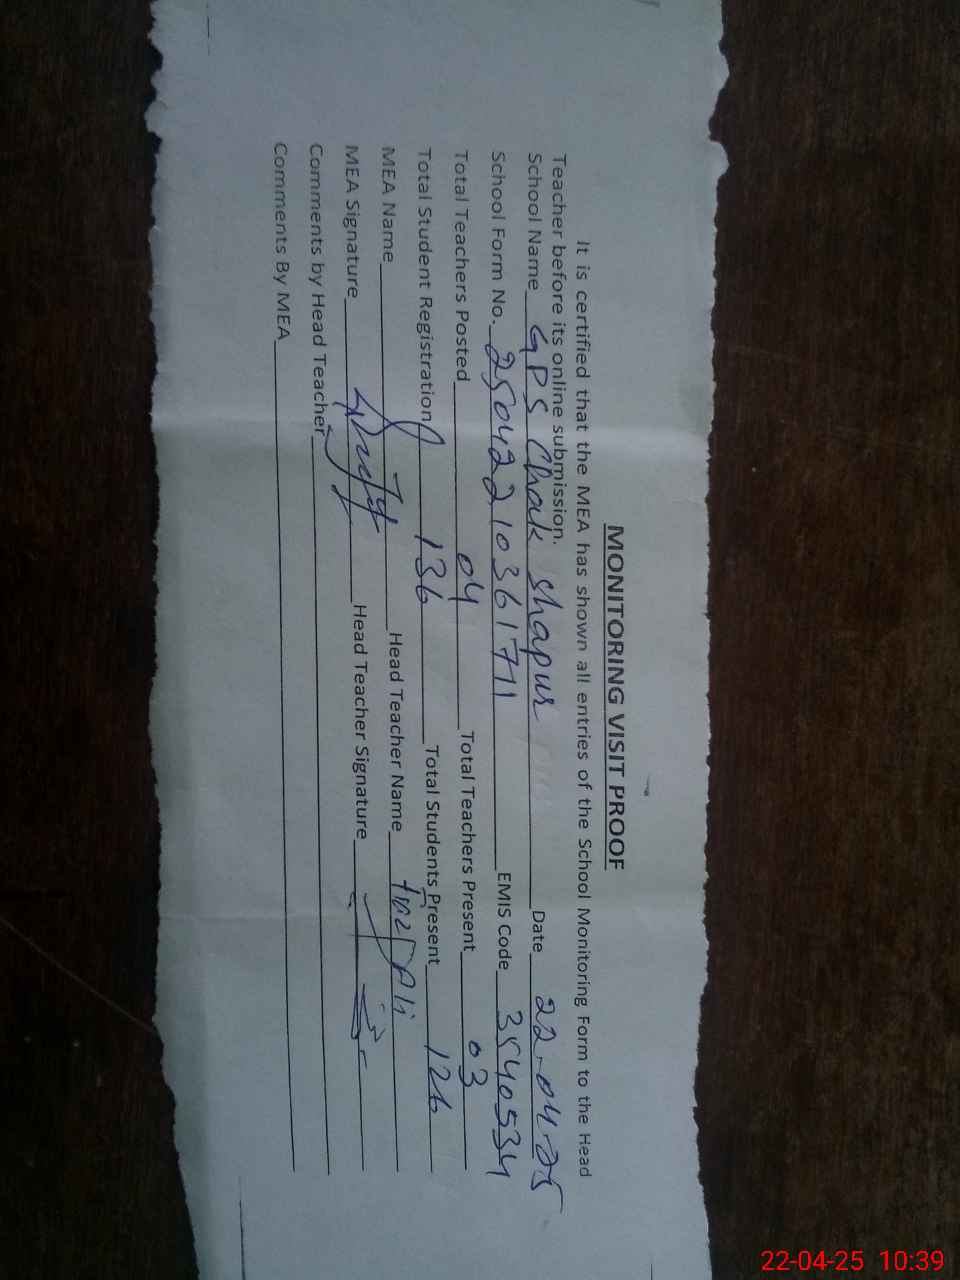 MONITORING VISIT PROOF
It is certified that the MEA has shown all entries of the School Monitoring Form to the Head
Teacher before its online submission.
School Name GPS Chak shapur Date 22-04-25
School Form No. 25042210361711 EMIS Code 3540534
Total Teachers Posted 04 Total Teachers Present 03
Total Student Registration 136 Total Students Present 126
MEA Name Head Teacher Name Ali
MEA Signature Head Teacher Signature
Comments by Head Teacher
Comments By MEA
22-04-25 10:39